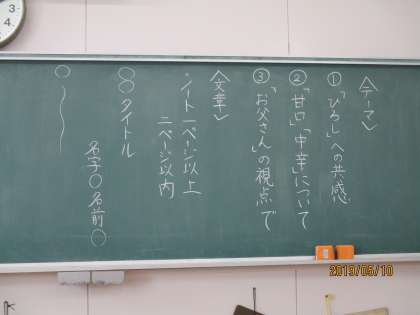 〈テーマ〉
①「ひろし」への共感
②「甘口」「中辛」について
③「お父さん」の視点で
〈文章〉
・ノート一ページ以上
二ページ以内
○○タイトル
名字○名前○
○
2019/05/10
3
4